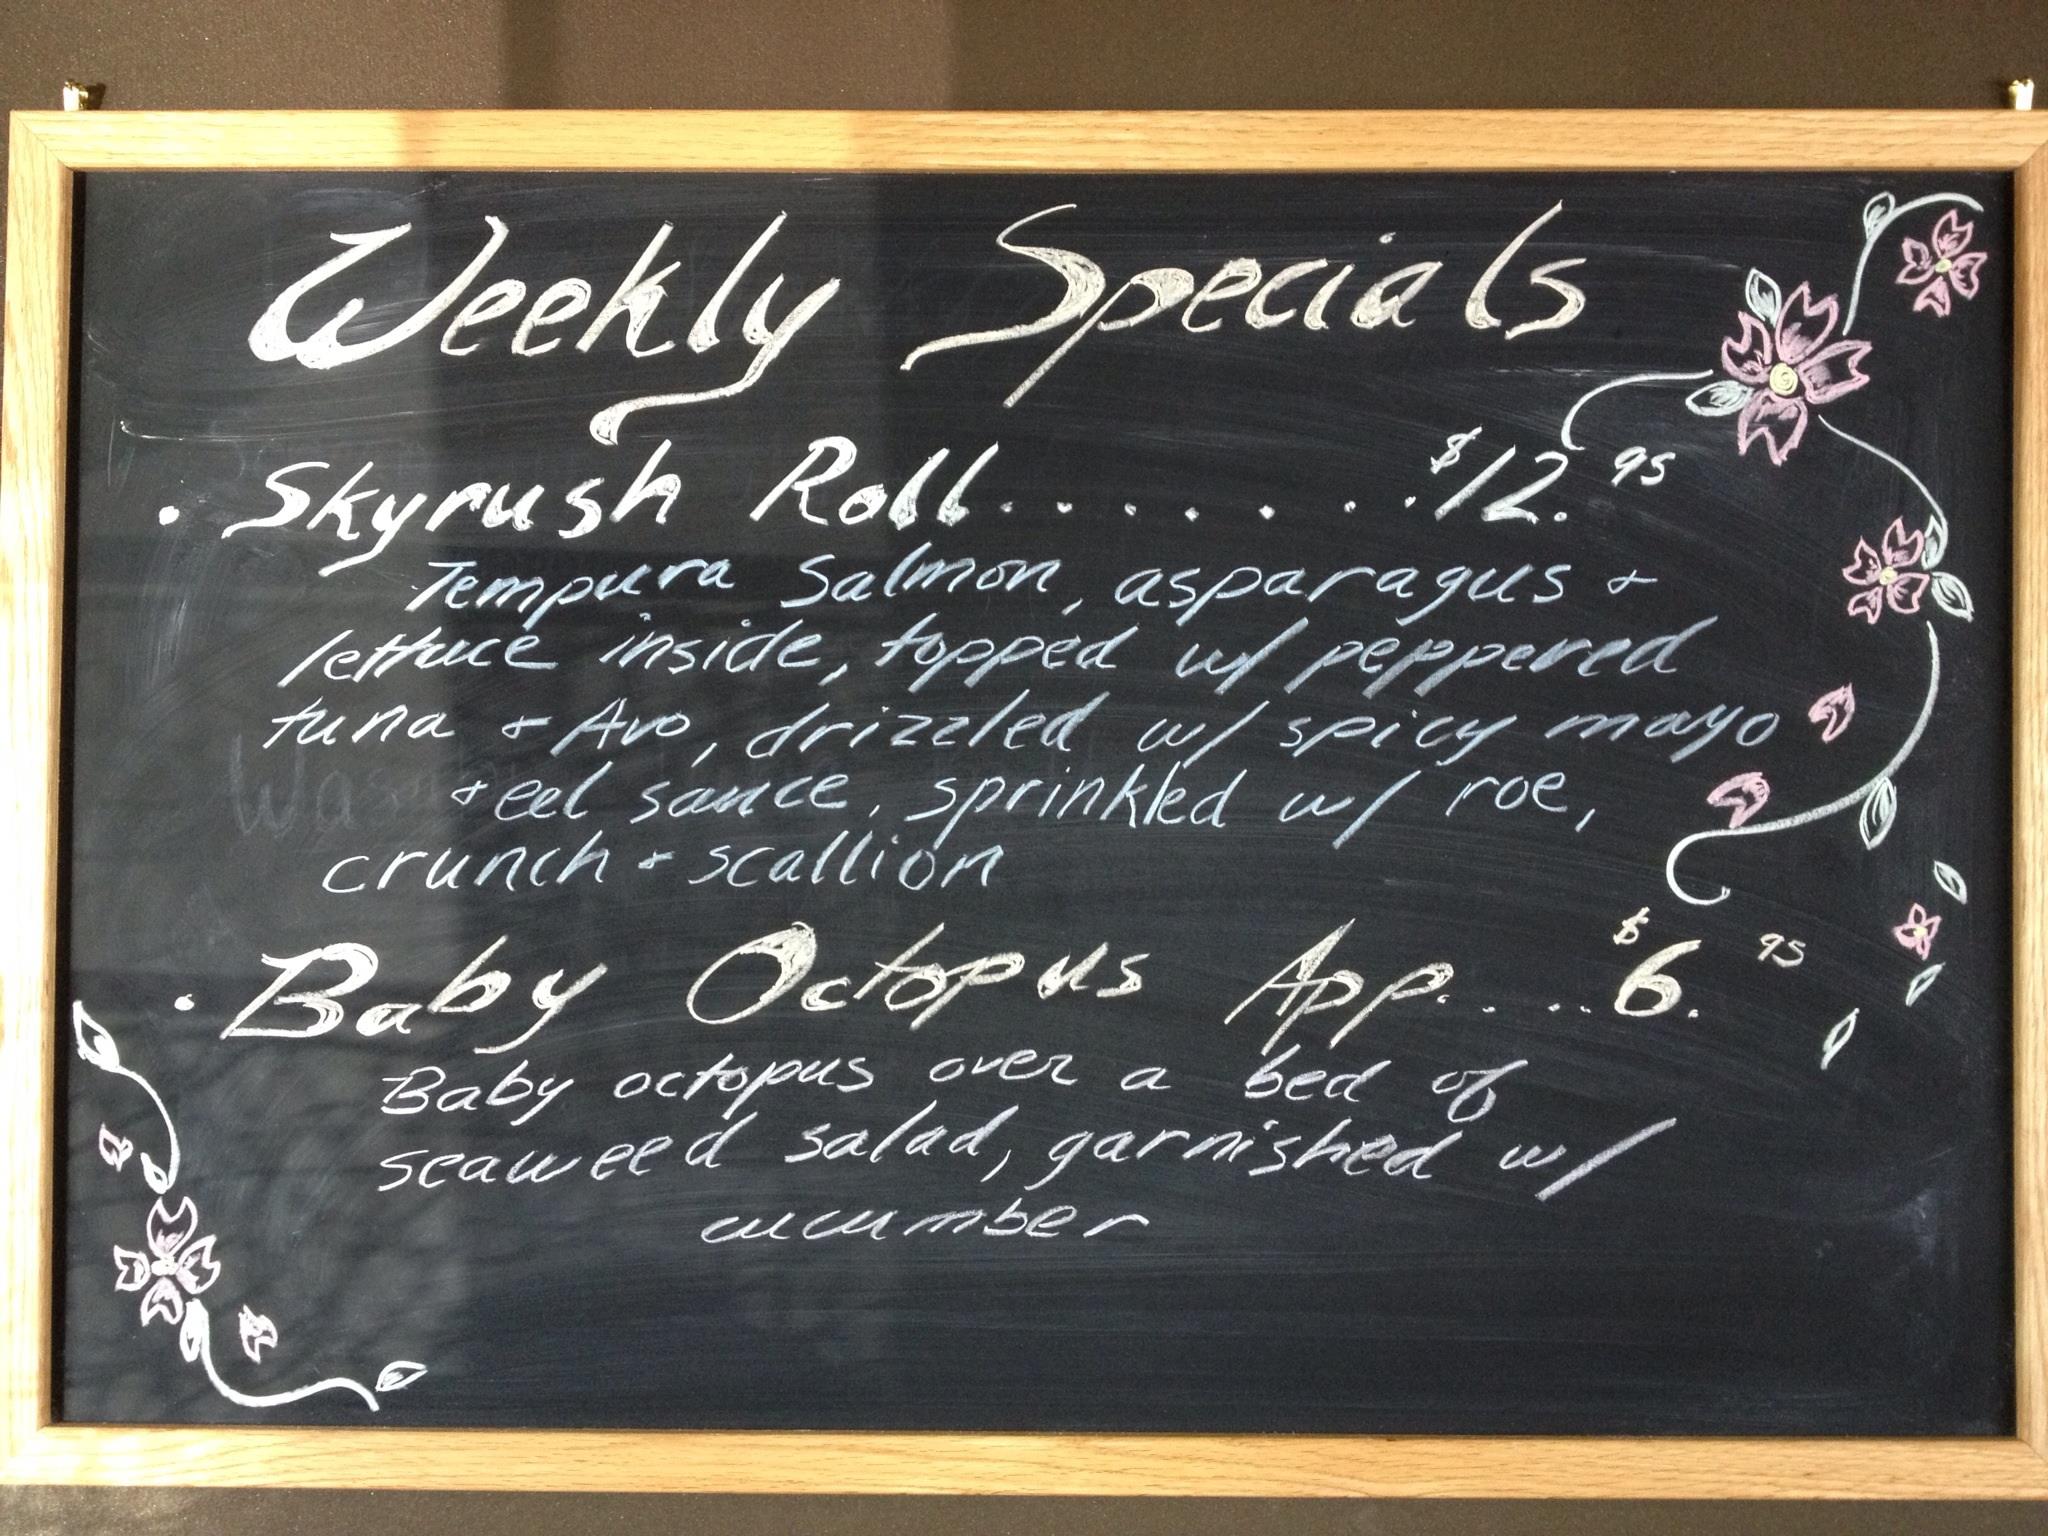 Weekly Specials
• Skyrush Roll........$12.95
Tempura Salmon, asparagus &
lettuce inside, topped w/ peppered
tuna & Avo, drizzled w/ spicy mayo
& eel sauce, sprinkled w/ roe,
crunch & scallion
• Baby Octopus App.....$6.95
Baby octopus over a bed of
seaweed salad, garnished w/
cucumber